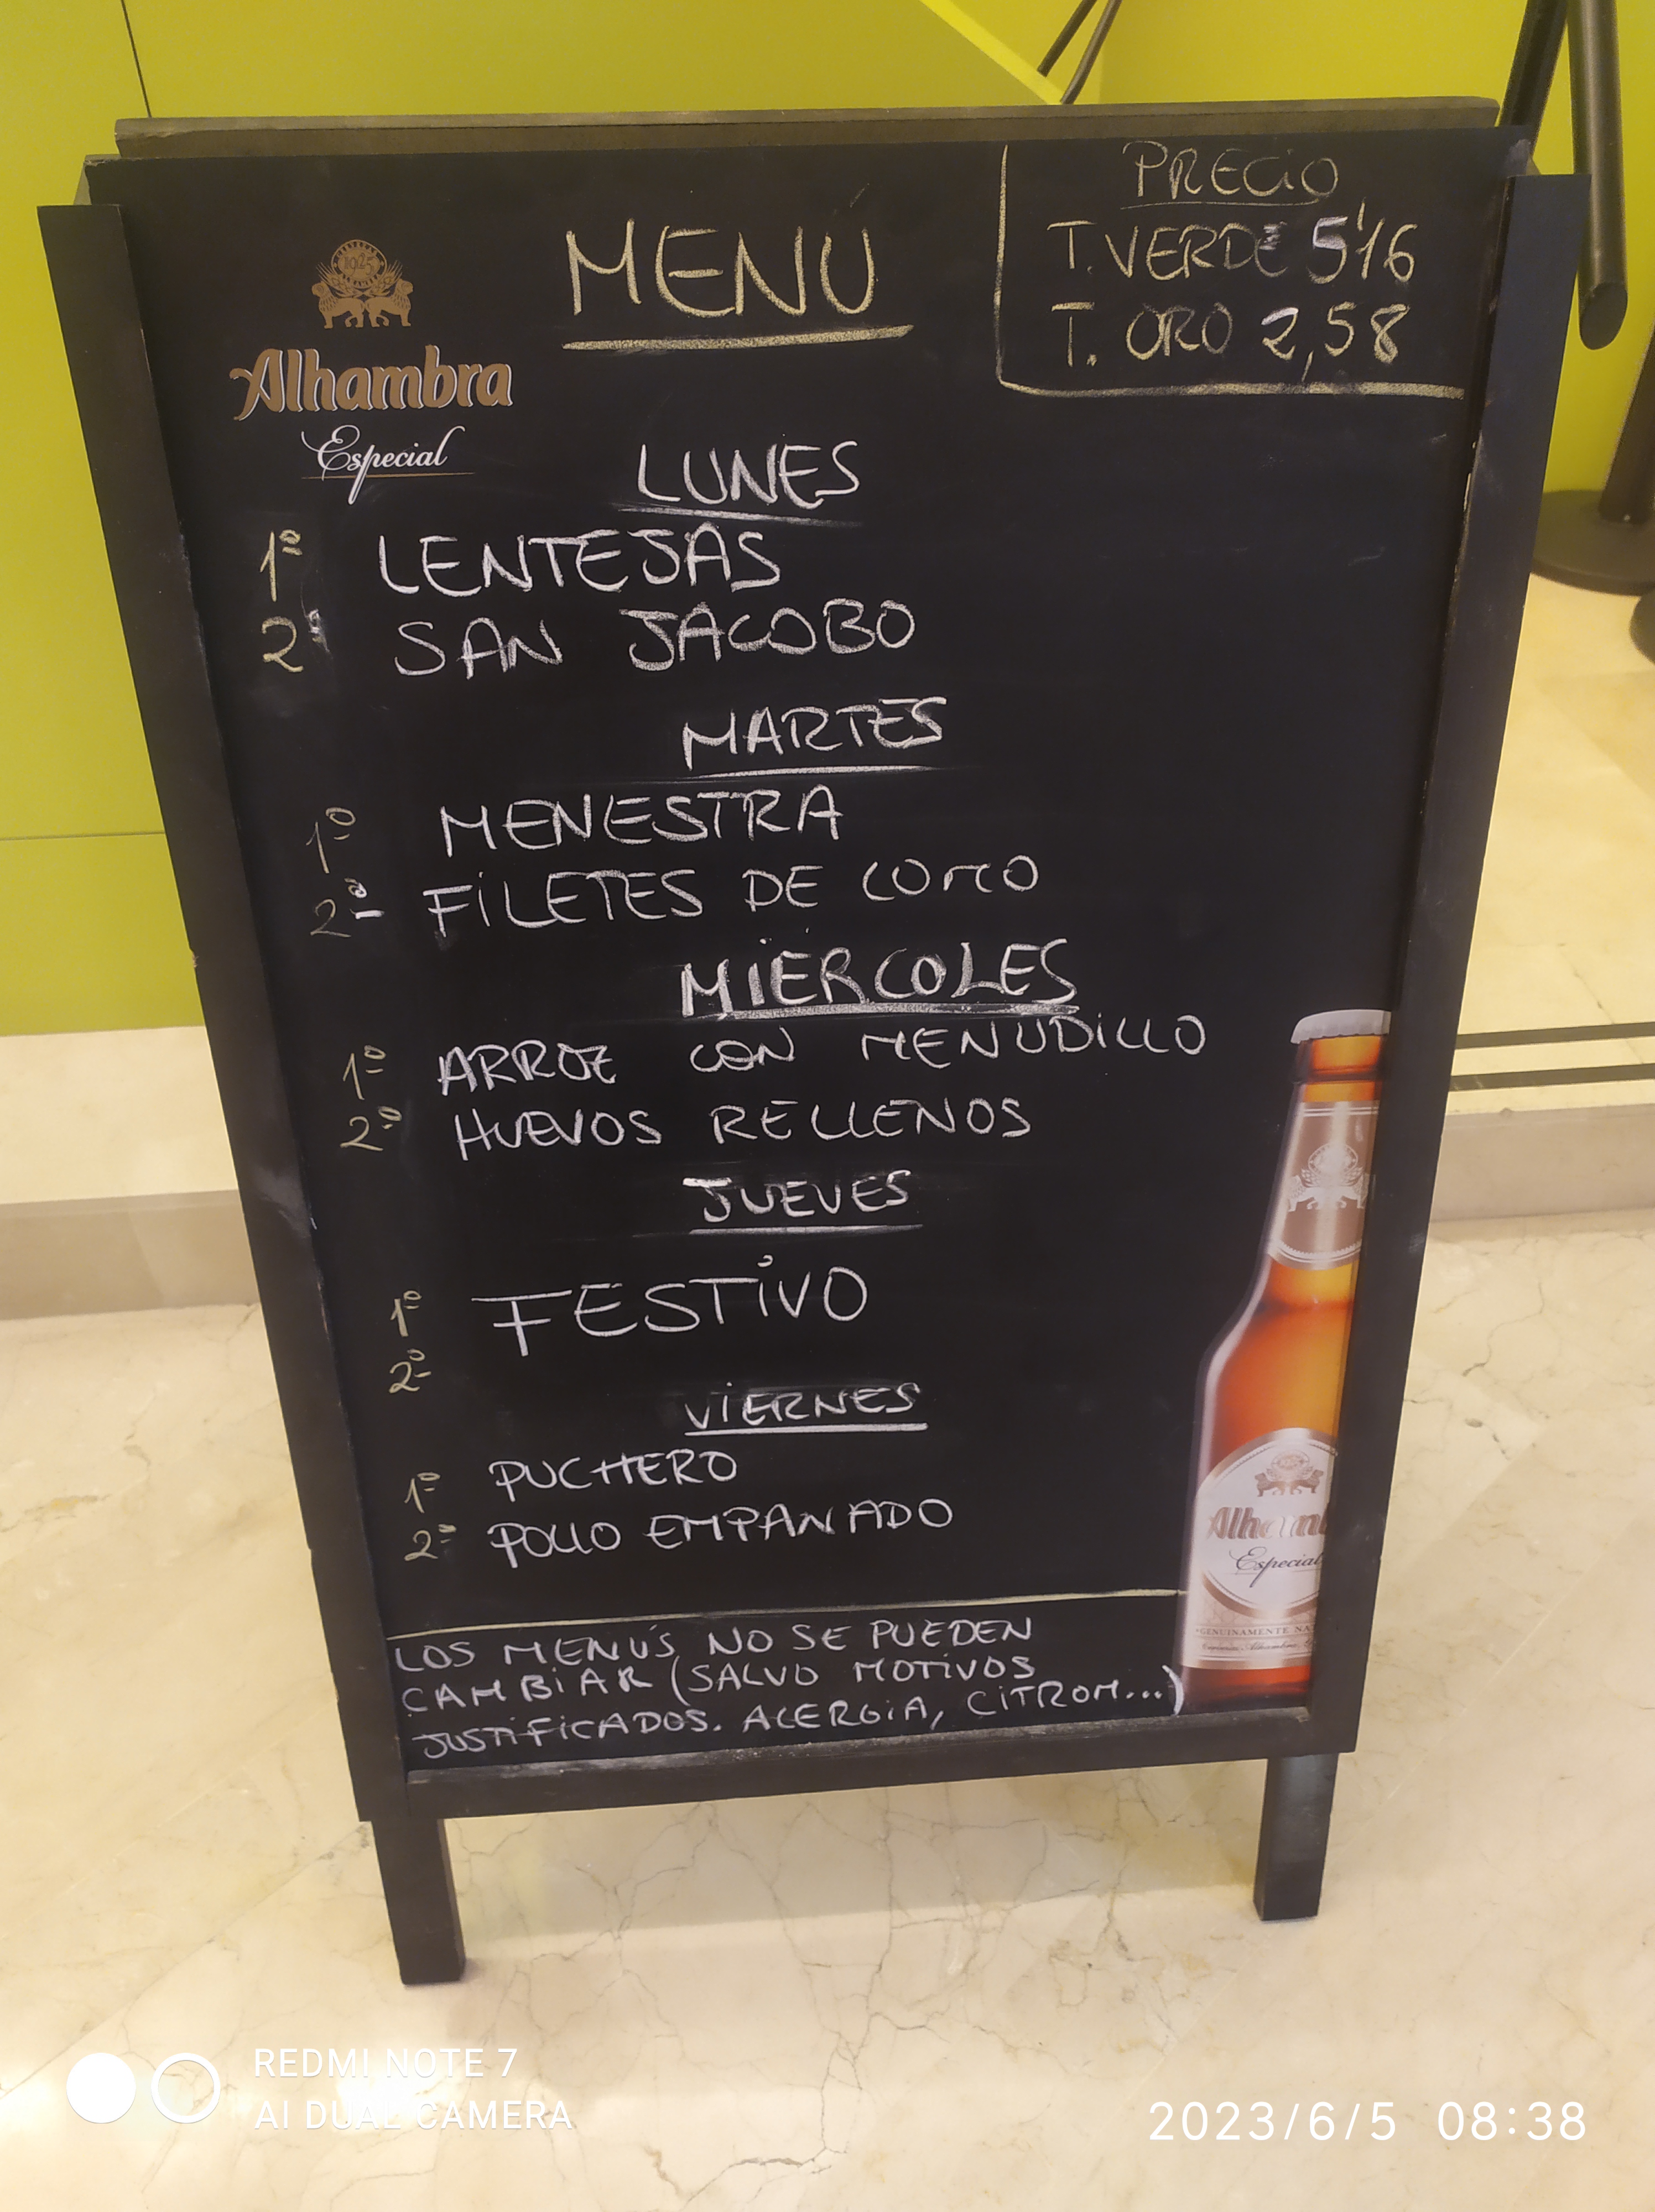 1925
Alhambra
Especial
MENÚ
PRECIO
T. VERDE 5'16
T. ORO 2,58
LUNES
1º LENTEJAS
2º SAN JACOBO
MARTES
1º MENESTRA
2º FILETES DE LOMO
MIERCOLES
1º ARROZ CON MENUDILLO
2º HUEVOS RELLENOS
JUEVES
1º FESTIVO
2º
VIERNES
1º PUCHERO
2º POLLO EMPANADO
LOS MENU'S NO SE PUEDEN
CAMBIAR (SALVO MOTIVOS
JUSTIFICADOS. ALERGIA, CITROM...)
Alhamb
Especial
GENUINAMENTE NA
REDMI NOTE 7
AI DUAL CAMERA
2023/6/5 08:38